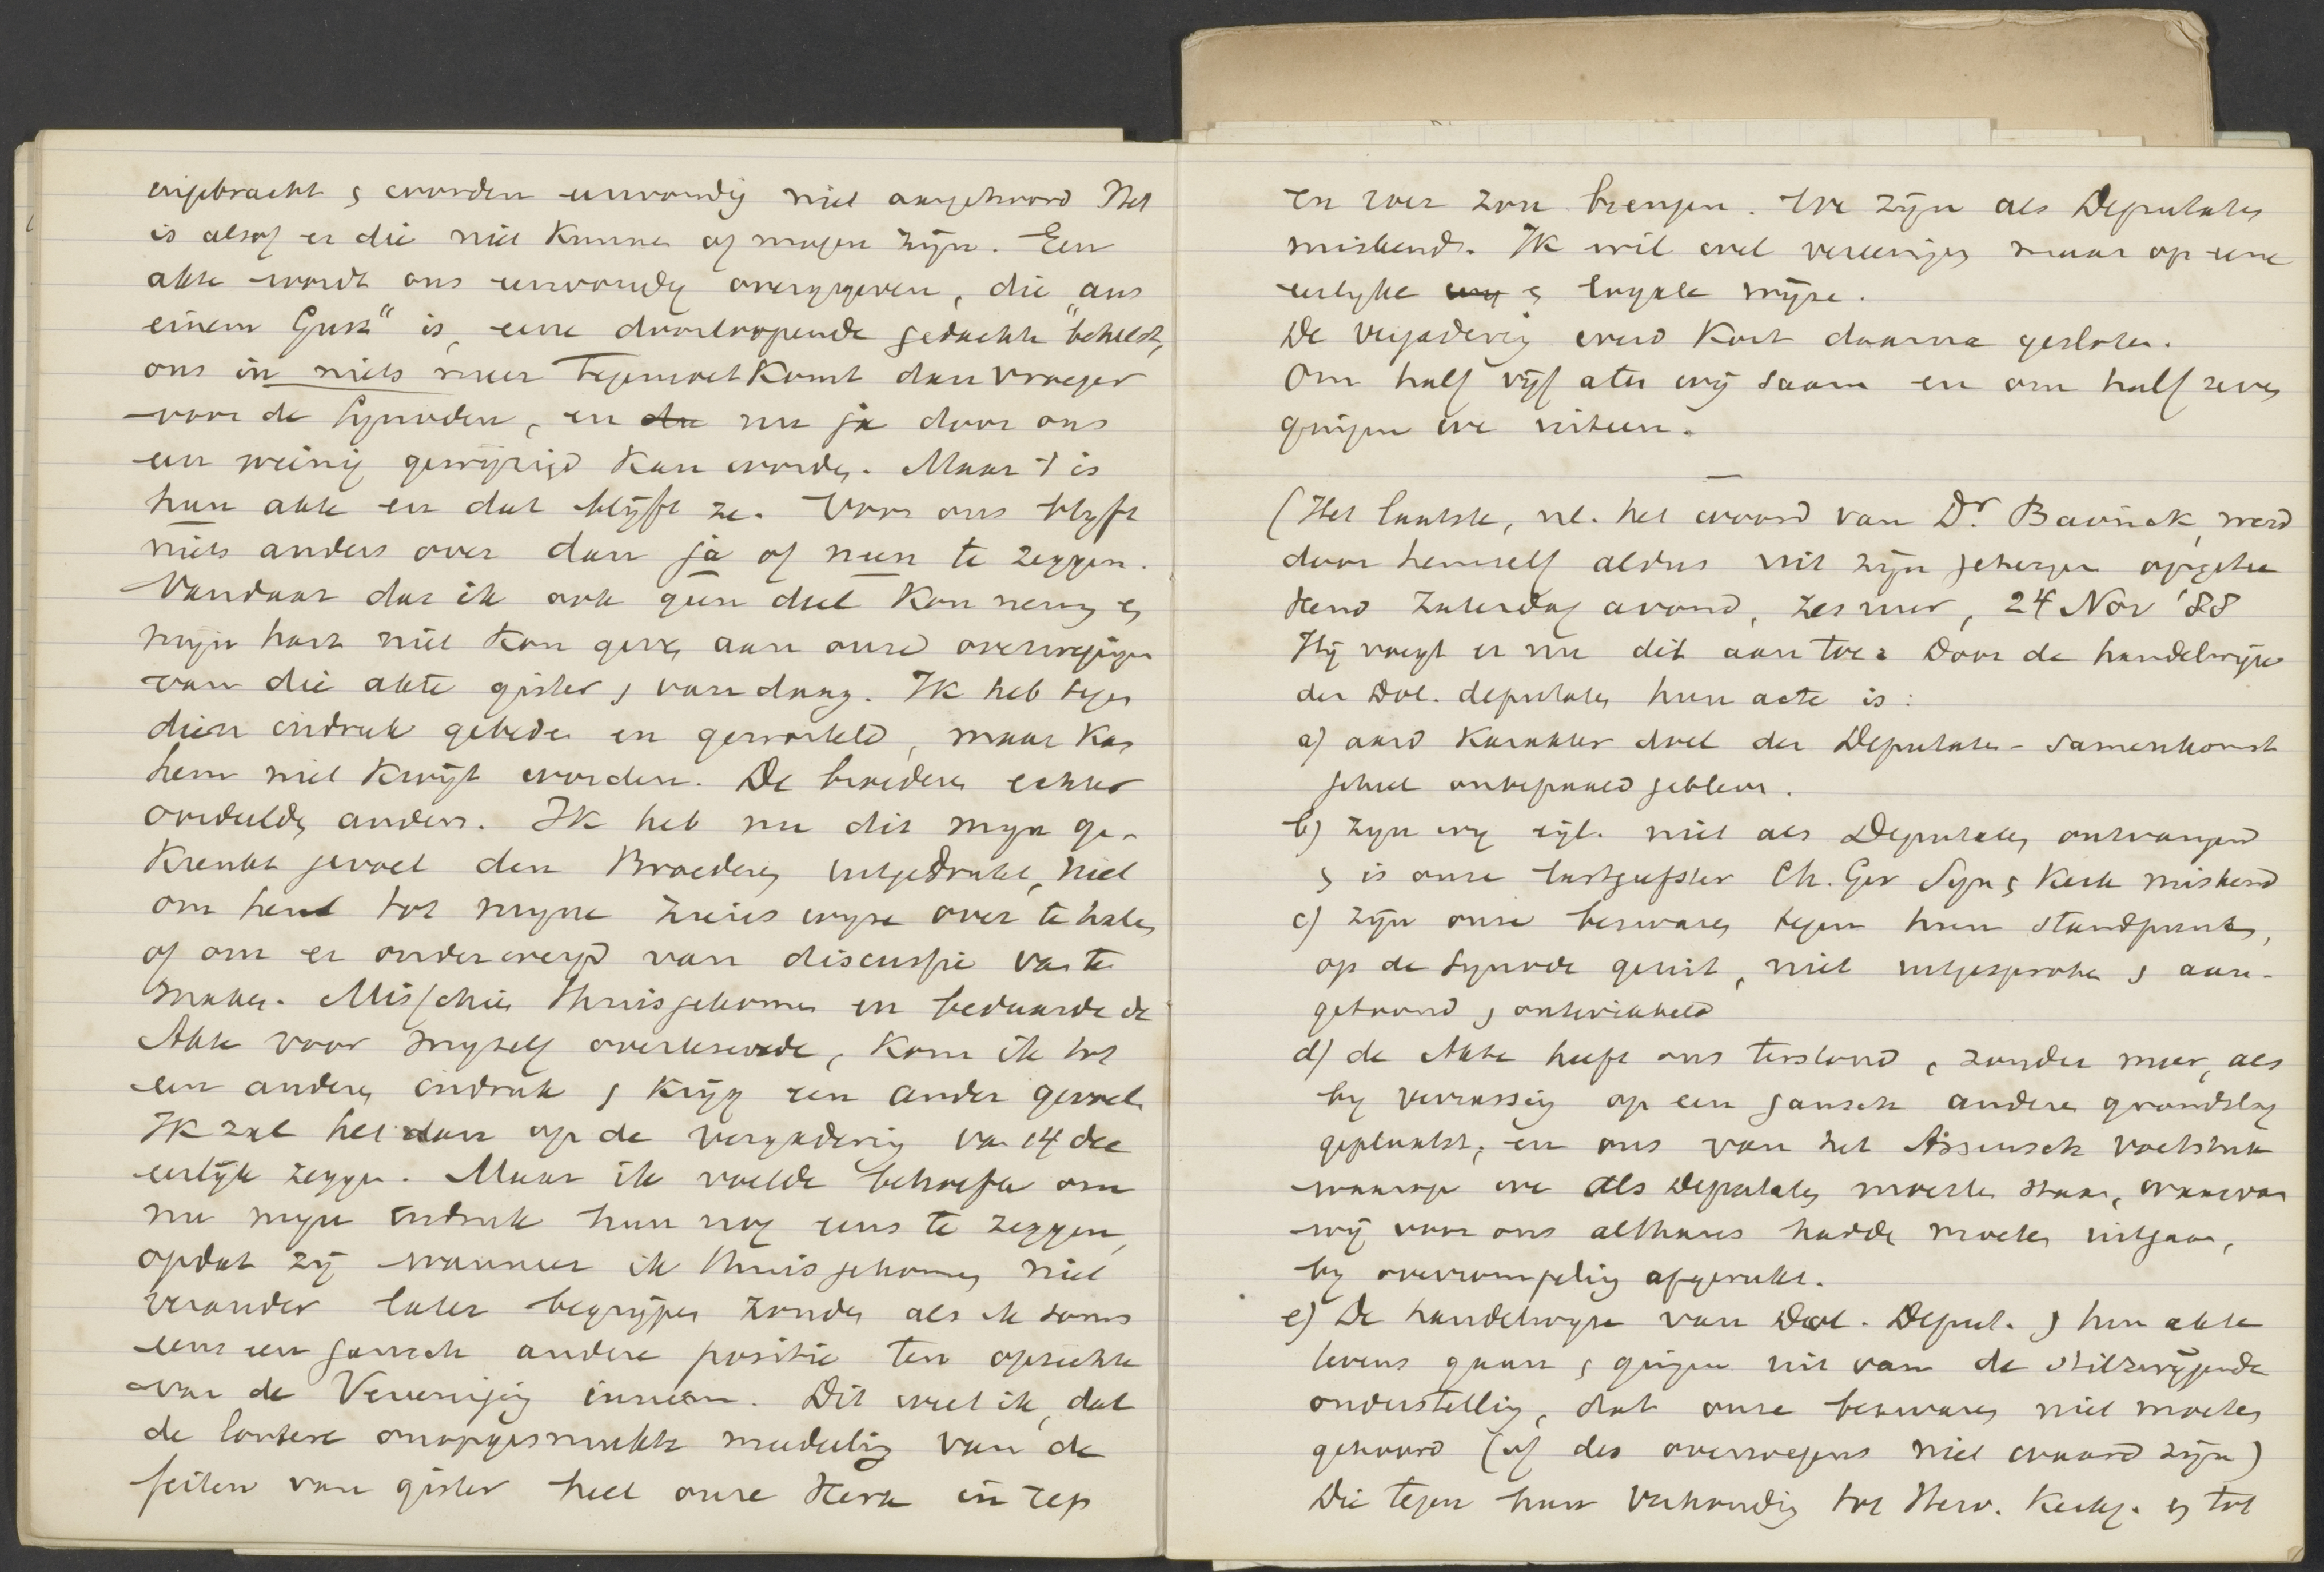 ingebracht & worden eenvoudig niet aangehoord Het
is alsof er die niet kunnen of mogen zijn. Een
akte wordt ons eenvoudig overgegeven, die „aus
einem Guss" is, eene doorloopende gedachte behelst,
ons in niets meer tegemoet komt dan vroeger
voor de Synoden, en die nu ja door ons
een weinig gewijzigd kan worden. Maar 't is
hun akte en dat blijft ze. Voor ons blyft
niets anders over dan ja of neen te zeggen.
Vandaar dat ik ook geen deel kon nemen &
mijn hart niet kon geven aan onze overwegingen
van die akte gister & vandaag. Ik heb tegen
dien indruk gebeden en geworsteld, maar kan
hem niet kwijt worden. De broeders echter
oordeelden anders. Ik heb nu dit mijn ge-
krenkt gevoel den Broeders uitgedrukt, niet
om hen tot mijne zienswijze over te halen
of om er onderwerp van discussie van te
maken. Misschien thuisgekomen en bedaarde de
Akte voor myzelf overlezende, kom ik tot
een anderen indruk & krijg een ander gevoel.
Ik zal het dan op de vergadering van 14 dec
eerlijk zeggen. Maar ik voelde behoefte om
nu mijn indruk hun nog eens te zeggen,
opdat zij wanneer ik thuis gekomen niet
verander later begrijpen zouden als ik soms
eens een gansch andere positie ten opzichte
van de Vereeniging inneem. Dit weet ik, dat
de loutere onopgesmukte mededeeling van de
feiten van gister heel onze Kerk in rep
en roer zou brengen. We zijn als Deputaten
miskend. Ik wil wel vereenigen maar op eene
eerlyke wy & loyale wijze.
De vergadering werd kort daarna gesloten.
Om half vijf aten wij saam en om half zeven
gingen we uiteen.
(Het laatste, nl. het woord van Dr. Bavinck, werd
door hemzelf aldus uit zijn geheugen opgete
kend Zaterdag avond, zes uur, 24 Nov '88
Hij voegt er nu dit aan toe: Door de handelwijze
der Dol. deputaten hun acte is:
a) aard karakter doel der Deputaten-samenkomst
geheel onbepaald gebleven.
b) zijn wij eigl. niet als Deputaten ontvangen
& is onze lastgeefster Ch. Ger Syn & Kerk miskend
c) zijn onze bezwaren tegen hun standpunt,
op de Synode geuit, niet uitgesproken & aan-
gehoord & ontwikkeld
d) de Akte heeft ons terstond, zonder meer, als
by verrassing op een gansch andere grondslag
geplaatst; en ons van het Assensch voetstuk
waarop we als Deputaten moesten staan, waarvan
wij voor ons althans hadden moeten uitgaan,
by overrompeling afgerukt.
e) De handelwyze van Dol. Deput. & hun akte
tevens gaan & gingen uit van de stilzwijgende
onderstelling, dat onze bezwaren niet moeten
gehoord (of des overwegens niet waard zijn)
Die tegen hun verhouding tot Herv. Kerkg. & tot